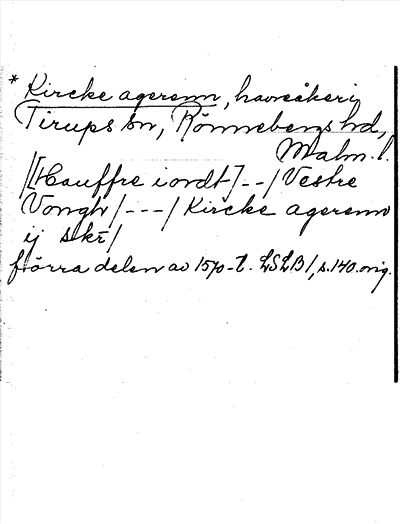 * Kircke agerenn, havreåker i
Tirups sn, Rönnebergs hd,
Malm. l.
/[Hauffre iordt] - - / Vestre
Vongh / - - - / Kircke agerenn
ij skr /
förra delen av 1570-t. LSLB I, s. 140. orig.